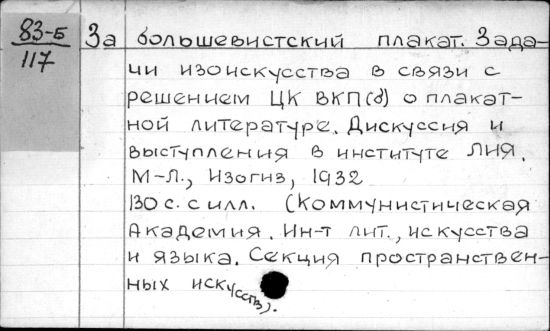 83-Б
117
За большевистский плакат. Зада-
чи изоискусства в связи с
решением ЦК ВКП(б) о плакат-
ной литературе. Дискуссия и
выступления в институте ЛИЯ.
М-Л., Изогиз, 1932
130 с. с илл. (Коммунистическая
Академия. Ин-т лит., искусства
и языка. Секция пространствен-
ных искусств).